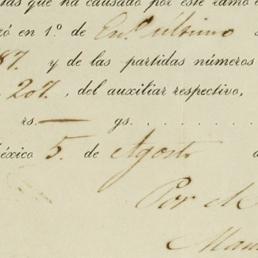 tas que ha causado por este ramo
zó en 1.º de En.º último
87. y de las partidas números
207. del auxiliar respectivo,
rs.— gs. . . . . . . .
éxico 5. de Agosto d
Por el